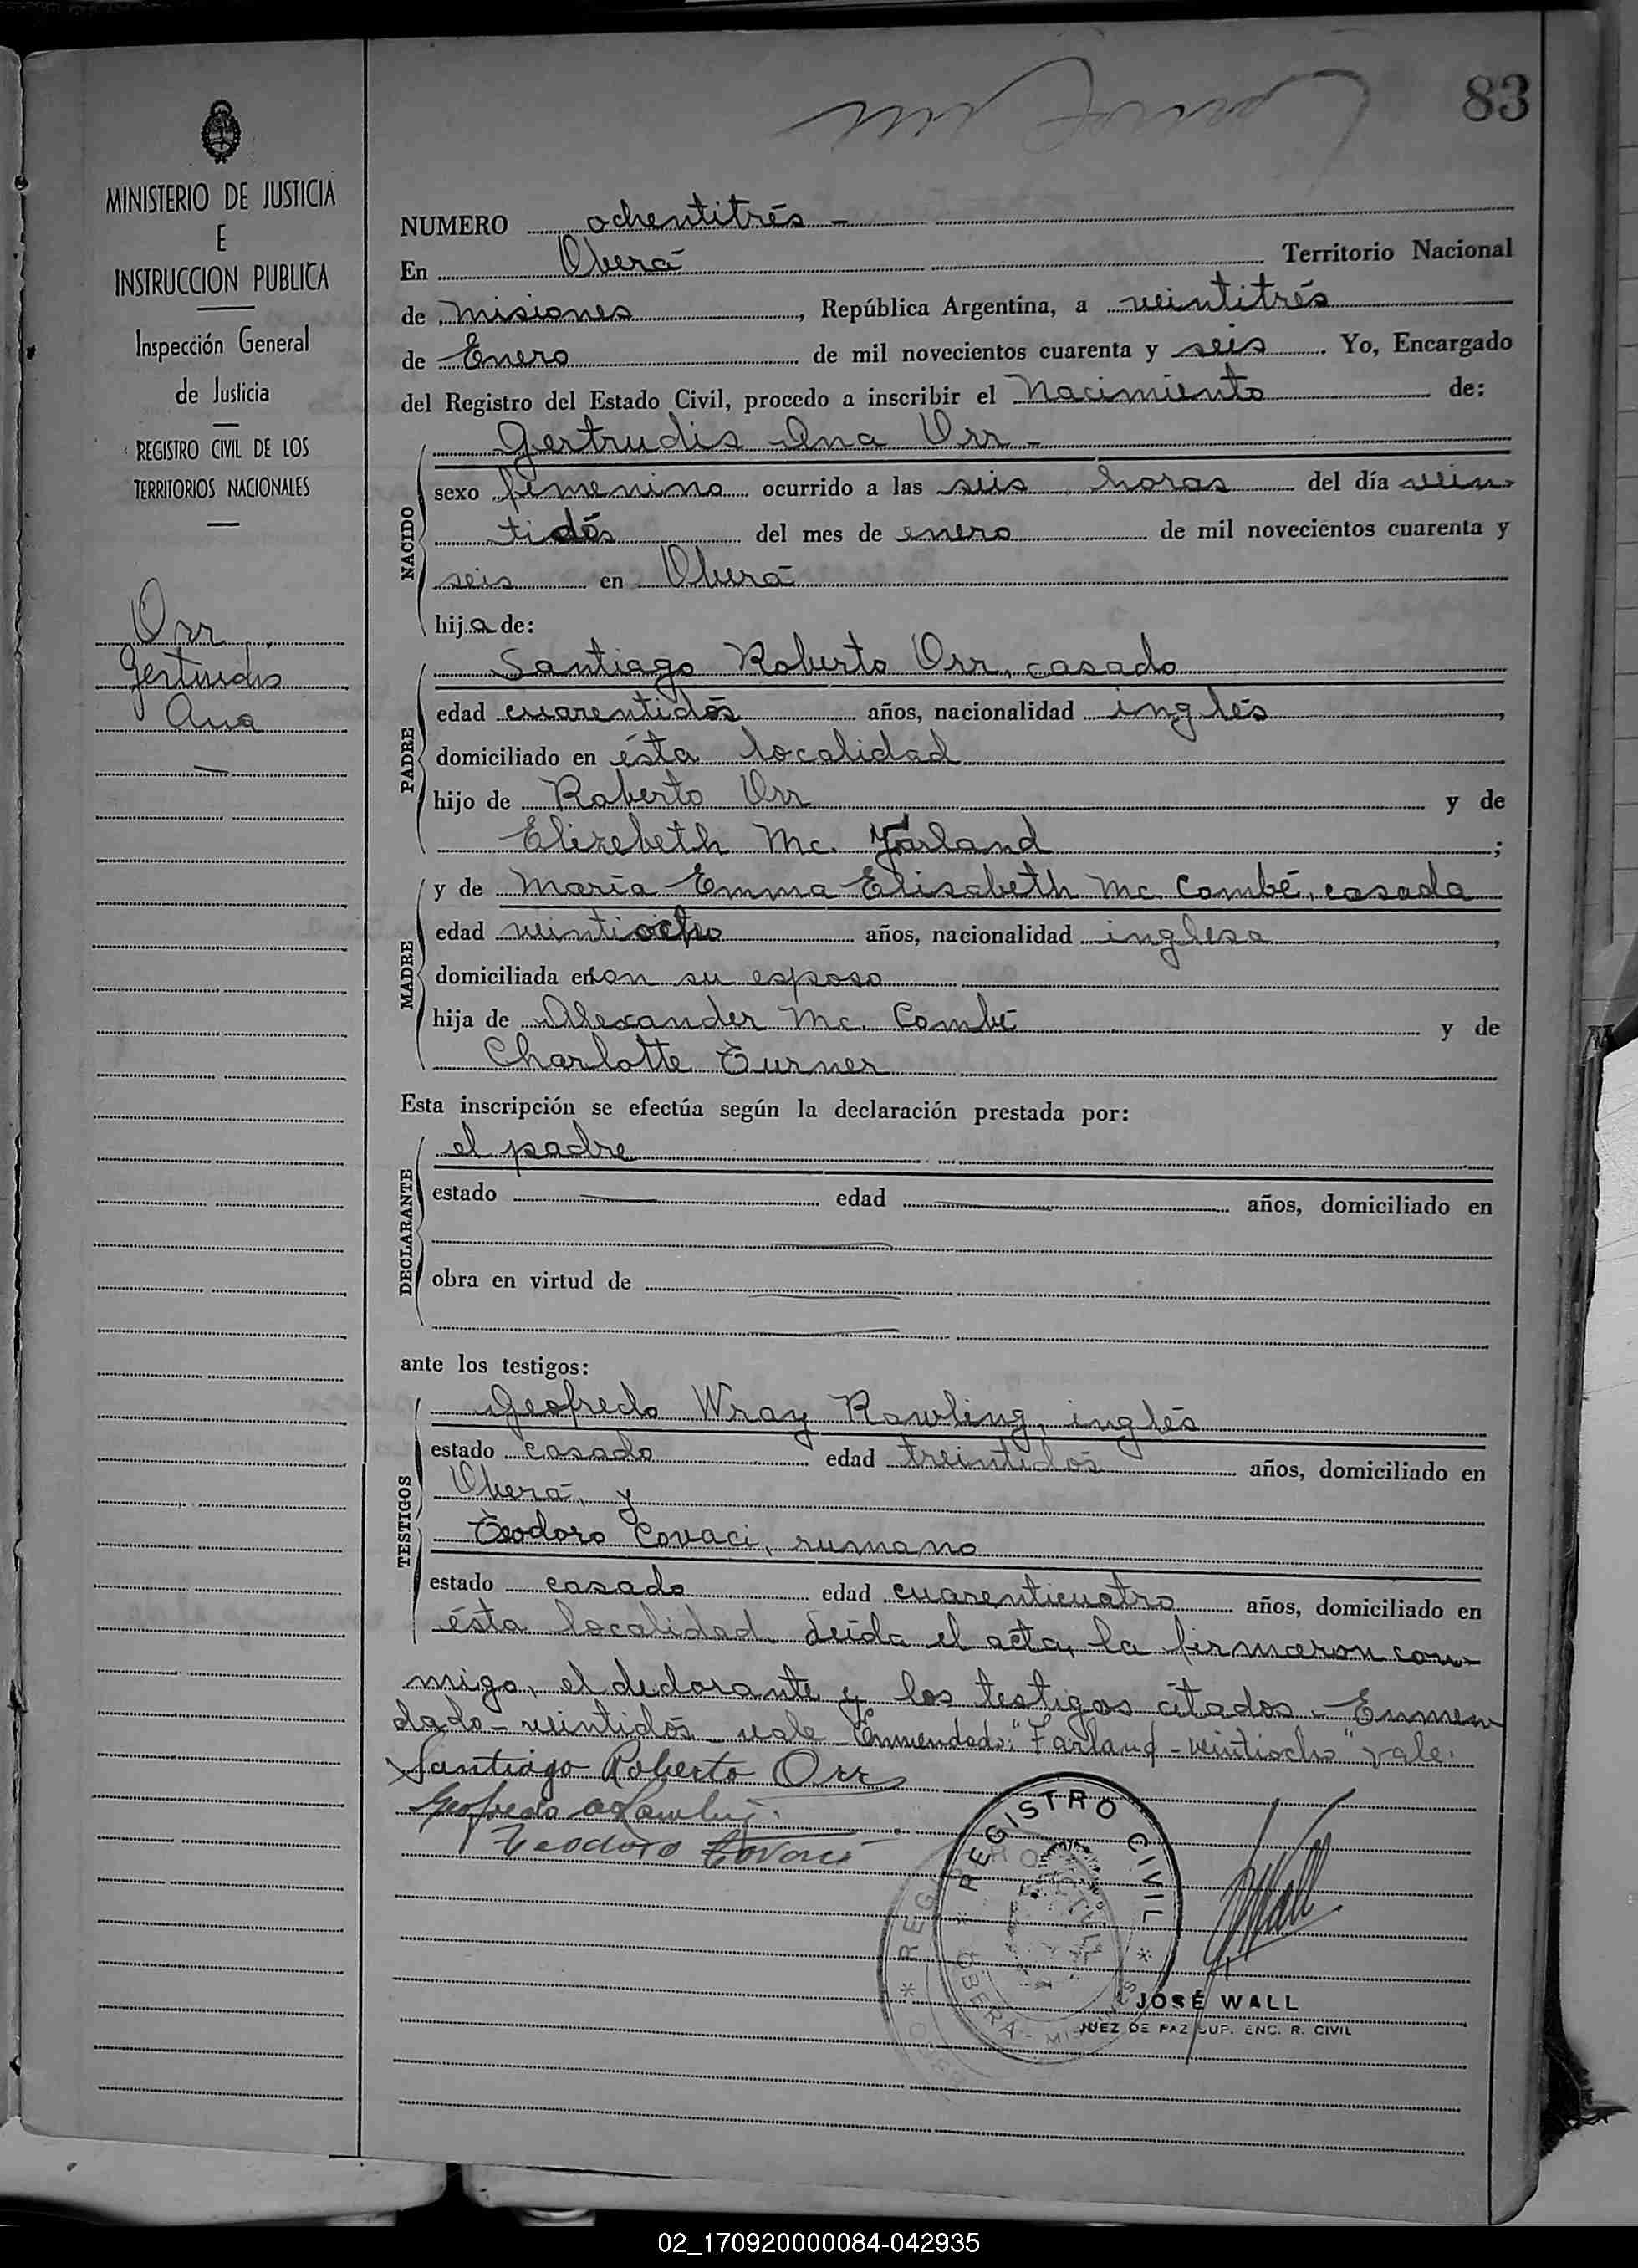 83
MINISTERIO DE JUSTICIA
E
INSTRUCCION PUBLICA
Inspección General
de Justicia
REGISTRO CIVIL DE LOS
TERRITORIOS NACIONALES
Orr
Gertrudis
Ana
—
NUMERO ochentitrés -
En Oberá Territorio Nacional
de Misiones, República Argentina, a veintitrés
de Enero de mil novecientos cuarenta y seis. Yo, Encargado
del Registro del Estado Civil, procedo a inscribir el Nacimiento de:
Gertrudis Ana Orr -
NACIDO
sexo femenino ocurrido a las seis horas del día vein-
tidós del mes de enero de mil novecientos cuarenta y
seis en Oberá
hija de:
PADRE
Santiago Roberto Orr, casado
edad cuarentidós años, nacionalidad inglés,
domiciliado en ésta localidad
hijo de Roberto Orr y de
Elizebeth Mc. Farland;
MADRE
y de María Emma Elisabeth Mc. Combé, casada
edad veintiocho años, nacionalidad inglesa,
domiciliada en con su esposo
hija de Alexander Mc. Combé y de
Charlotte Turner
Esta inscripción se efectúa según la declaración prestada por:
DECLARANTE
el padre
estado — edad — años, domiciliado en
—
obra en virtud de —
—
ante los testigos:
TESTIGOS
Geofredo Wray Rawling, inglés
estado casado edad treintidós años, domiciliado en
Oberá, y
Teodoro Covaci, rumano
estado casado edad cuarenticuatro años, domiciliado en
ésta localidad. Leída el acta, la firmaron con-
migo, el declarante y los testigos citados - Enmen-
dado - veintidós - vale - Enmendado: "Farland - veintiocho" vale.
Santiago Roberto Orr
Geofredo W Rawling.
Teodoro Covaci
REGISTRO CIVIL
* OBERÁ - MISIONES *
JWall
JOSÉ WALL
JUEZ DE PAZ SUP. ENC. R. CIVIL
02_170920000084-042935